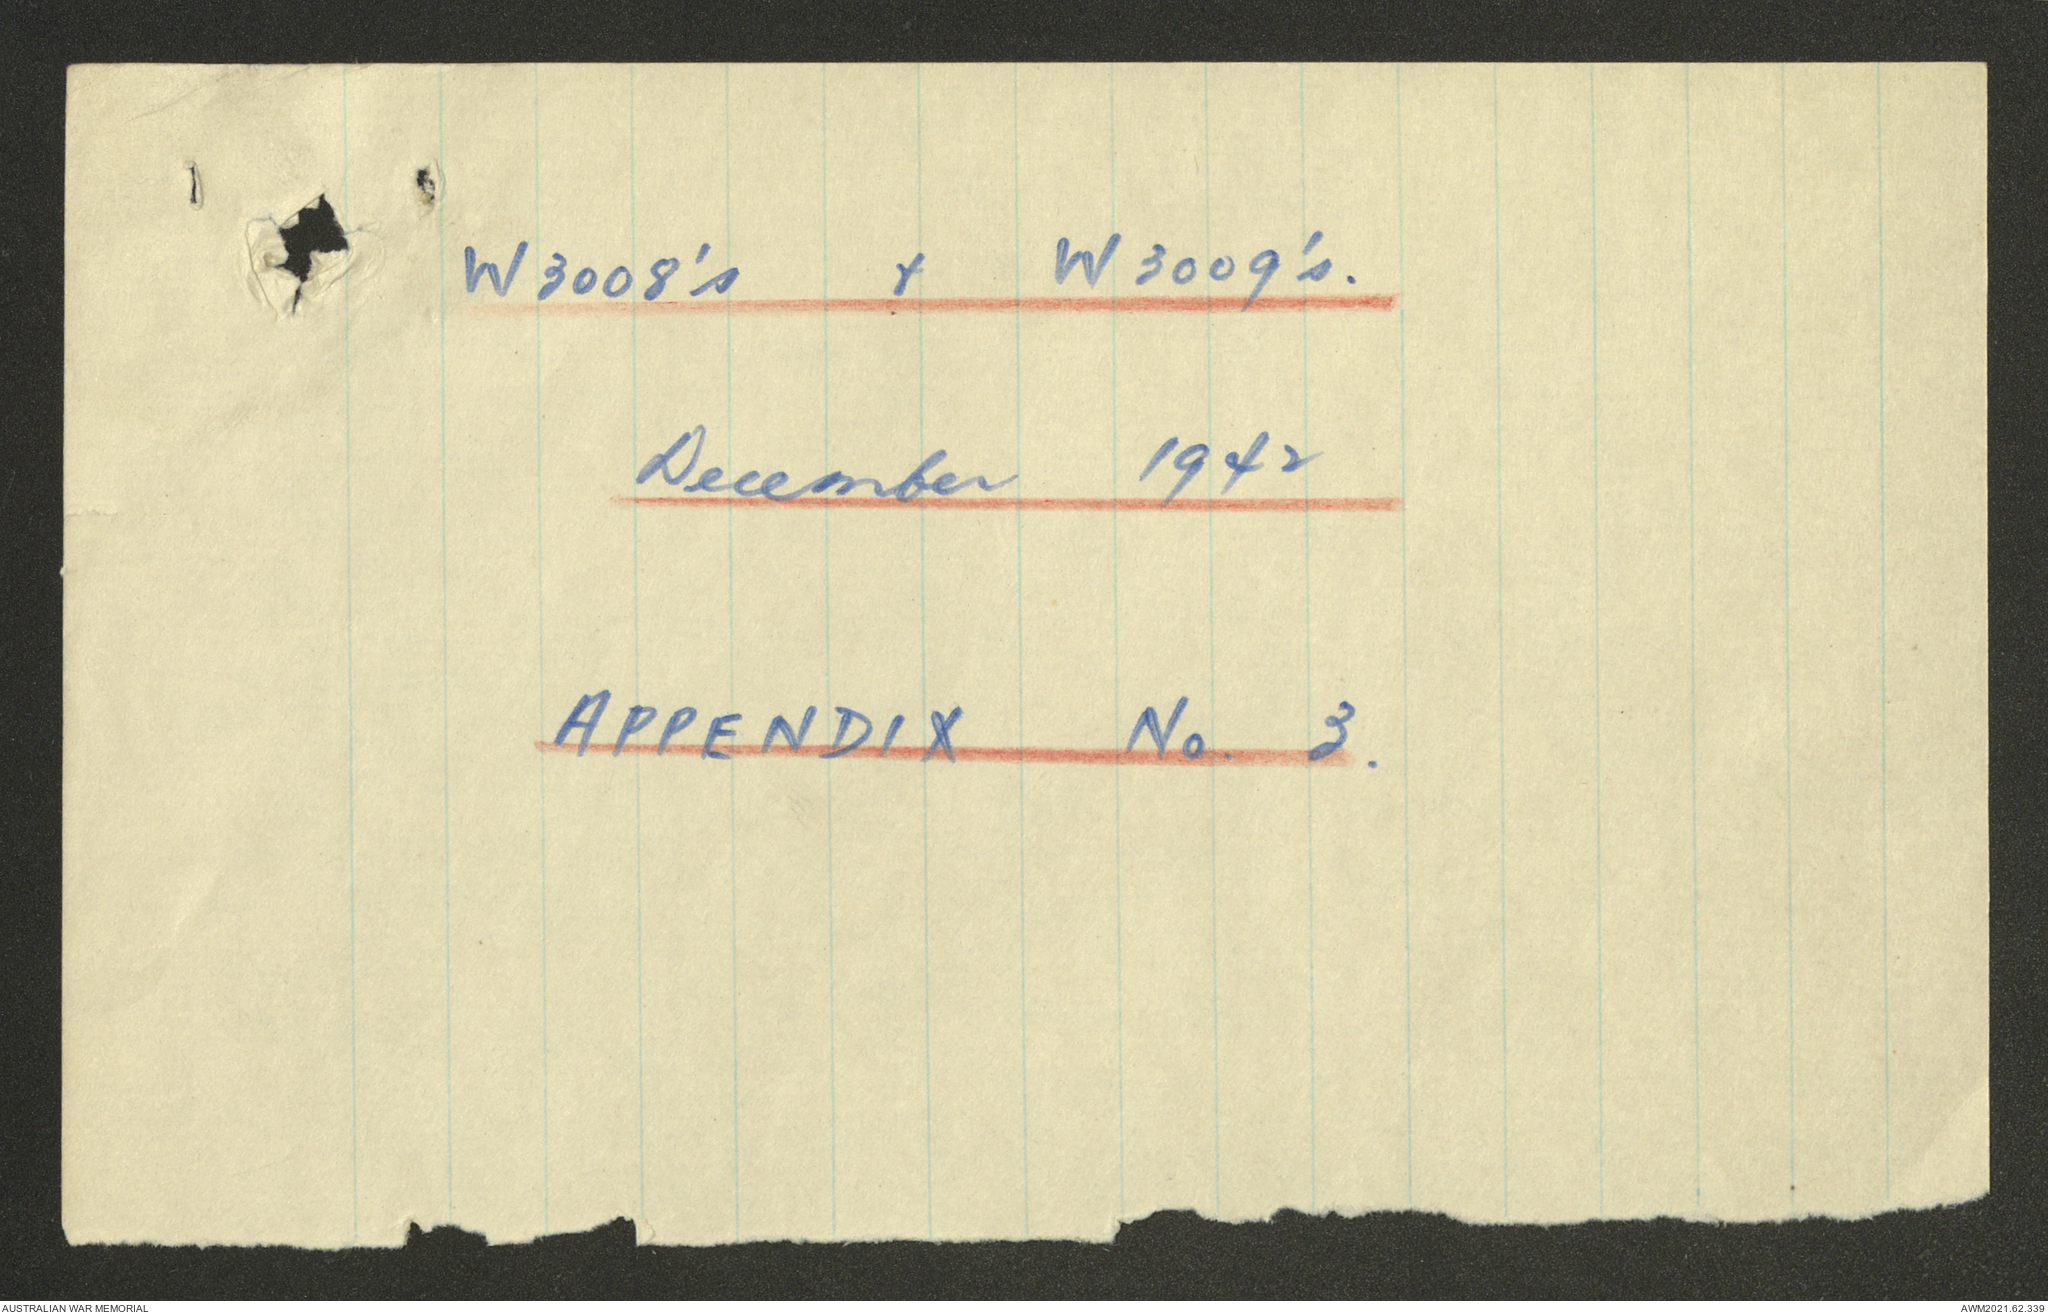 W3008's & W3009's.
December 1942
APPENDIX No. 3.
AUSTRALIAN WAR MEMORIAL
AWM2021.62.339